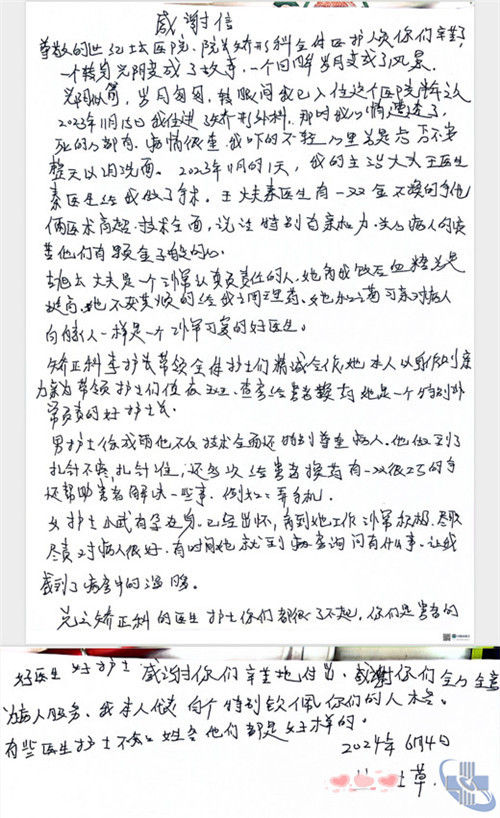 感谢信
尊敬的世纪坛医院. 院长矫形科全体医护人员你们辛苦了
一个转身光阴变成了故事. 一个回眸岁月变成了风景
光阴似箭, 岁月匆匆, 转眼间我已入住这个医院
2023年11月15日我住进 矫形外科. 那时我心情
死的心都有. 病情很重. 我吓的不轻 心里总是
整天以泪洗面。 2023年11月的1天, 我的主治大夫王医生
秦医生给我做了手术。王大夫秦医生有一双金不换的手他
俩医术高超. 技术全面, 说话特别有亲和力. 关心病人
他们有颗金子般的心.
大夫是一个非常认真负责任的人. 她看我饭后血糖总是
挺高. 她不厌其烦的给我调理药. 她 对病人
向亲人一样是一个非常可爱的好医生。
矫正科李护长带领全体护士们精诚合作, 她本人以身作则
带领护士们值夜班. 查房给患者换药她是一个特别非
常负责的好护士长.
男护士 他不仅技术全面还特别尊重病人. 他做到了
扎针不疼, 扎针准, 还多次给患者换药有一双很巧的手
还帮助患者解决一些事. 例如: 弄手机.
女护士小武有孕在身. 已经出怀, 看到她工作非常积极. 尽职
尽责对病人很好. 有时间她就到病房询问有什么事. 让我
感到了病房中的温暖。
总之矫正科的医生护士你们都很了不起, 你们是患者的
好医生 好护士 感谢你们辛苦地付出, 感谢你们全心全意
为病人服务. 我本人 特别钦佩你们的人格。
有些医生护士不知姓名他们都是好样的。
2024年 6月4日
草.